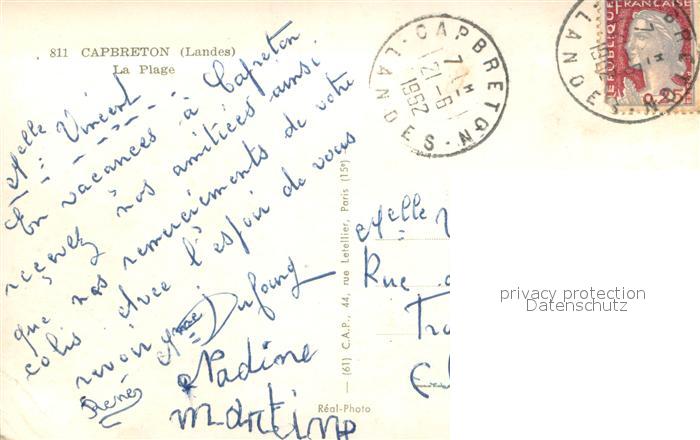 811 CAPBRETON (Landes)
La Plage
Melle Vincent
En vacances à Capbreton
recevez nos amitiées ainsi
que nos remerciements de votre
colis avec l'espoir de vous
revoir Mme Dufourg
René
Nadine
martine
(61) C.A.P., 44, rue Letellier, Paris (15e)
Réal-Photo
CAPBRETON
7H
21-6
1962
LANDES
REPUBLIQUE FRANÇAISE
0,25F
Melle V
Rue
privacy protection
Datenschutz